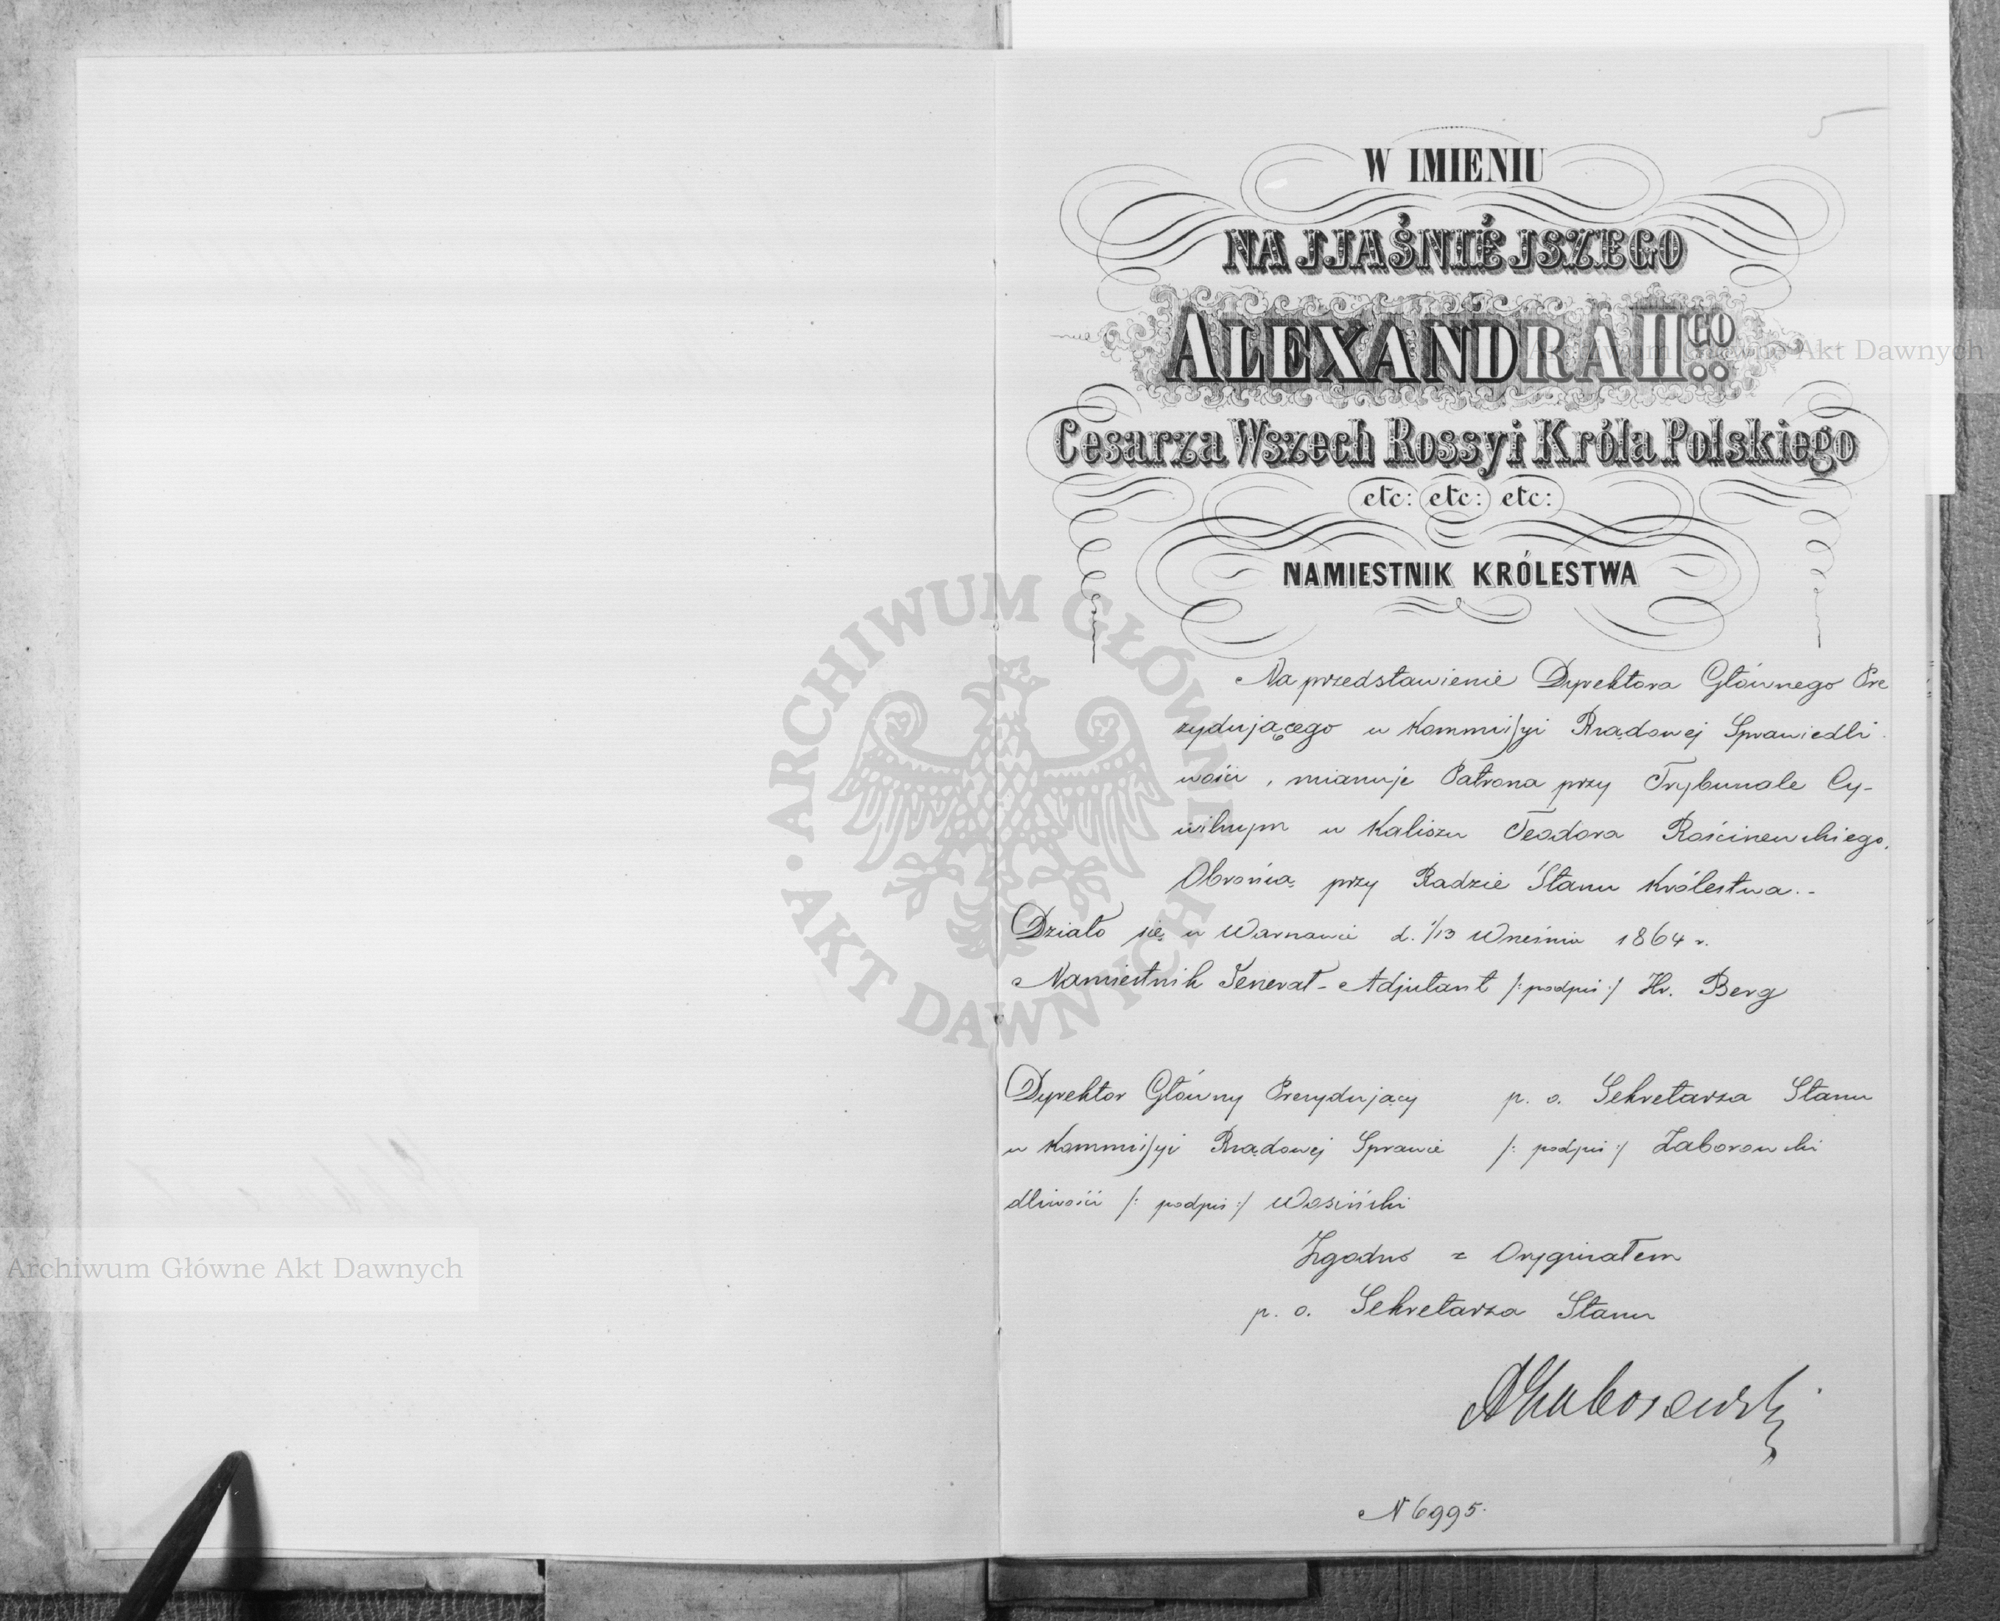 5
W IMIENIU
NAJJAŚNIÉJSZEGO
ALEXANDRA IIGO.
Cesarza Wszech Rossyi Króla Polskiego
etc: etc: etc:
NAMIESTNIK KRÓLESTWA
Na przedstawienie Dyrektora Głównego Pre
zydującego w Kommissyi Rządowej Sprawiedli
wości, mianuje Patrona przy Trybunale Cy-
wilnym w Kaliszu Teodora Rościszewskiego,
Obrońcą przy Radzie Stanu Królestwa.-
Działo się w Warszawie d. 1/13 Września 1864 r.
Namiestnik Jenerał-Adjutant /:podpis:/ Hr. Berg
Dyrektor Główny Prezydujący
w Kommissyi Rządowej Sprawie
dliwości /: podpis:/ Wosiński
p. o. Sekretarza Stanu
/: podpis:/ Zaborowski
Zgodno z Oryginałem
p. o. Sekretarza Stanu
Zaborowski
N 6995.
ARCHIWUM GŁÓWNE AKT DAWNYCH
Archiwum Główne Akt Dawnych
Archiwum Główne Akt Dawnych